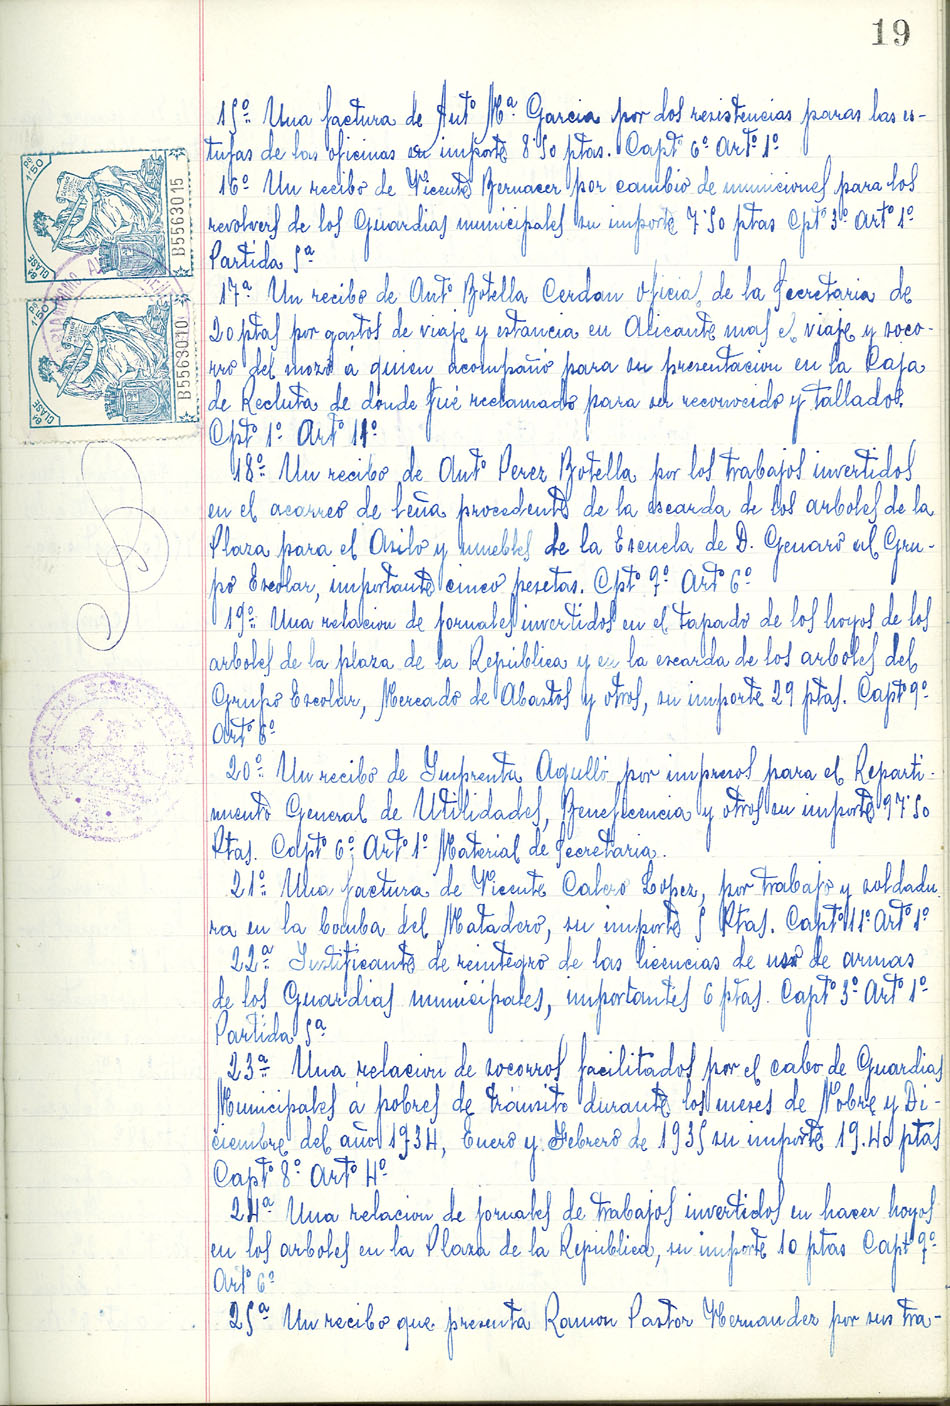 19
15º Una factura de Antº Mª Garcia por dos resistencias paras las es-
tufas de las oficinas su importe 8'50 ptas. Captº 6º Artº 1º
16º Un recibo de Vicente Bernacer por cambio de municiones para los
revolvers de los Guardias municipales su importe 7'50 ptas Cptº 3º Artº 1º
Partida 5ª
17ª Un recibo de Antº Botella Cerdan oficial de la Secretaria de
20 ptas por gastos de viaje y estancia en Alicante mas el viaje y soco-
rro del mozo á quien acompaño para su presentacion en la Caja
de Recluta de donde fué reclamado para ser reconocido y tallado.
Cptº 1º Artº 11º
18º Un recibo de Antº Perez Botella por los trabajos invertidos
en el acarreo de leña procedente de la escarda de los arboles de la
Plaza para el Asilo y muebles de la Escuela de D. Genaro al Gru-
po Escolar, importante cinco pesetas. Cptº 9º Artº 6º
19º Una relacion de jornales invertidos en el tapado de los hoyos de los
arboles de la plaza de la República y en la escarda de los arboles del
Grupo Escolar, Mercado de Abastos y otros, su importe 29 ptas. Captº 9º
Artº 6º
20º Un recibo de Imprenta Agulló por impresos para el Reparti-
miento General de Utilidades, Beneficencia y otros su importe 97'50
Ptas. Captº 6º Artº 1º Material de Secretaria.
21º Una factura de Vicente Calero Lopez, por trabajo y soldadu
ra en la bomba del Matadero, su importe 5 Ptas. Captº 11º Artº 1º
22ª Justificante de reintegro de las licencias de uso de armas
de los Guardias municipales, importantes 6 ptas. Captº 3º Artº 1º
Partida 5ª
23ª Una relacion de socorros facilitados por el cabo de Guardias
Municipales á pobres de tránsito durante los meses de Nobre y Di-
ciembre del año 1934, Enero y Febrero de 1935 su importe 19.40 ptas
Captº 8º Artº 4º
24ª Una relacion de jornales de trabajos invertidos en hacer hoyos
en los arboles en la Plaza de la Republica, su importe 10 ptas Captº 9º
Artº 6º
25ª Un recibo que presenta Ramon Pastor Hernandez por sus tra-
1'50
8ª CLASE
B5563015
1'50
8ª CLASE
B5563010